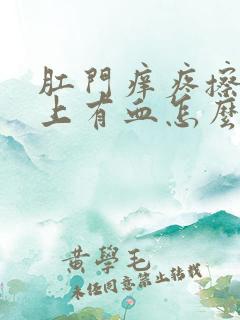 肛門痒疼擦
上有血怎麼
黄學毛
未經同意禁止轉載